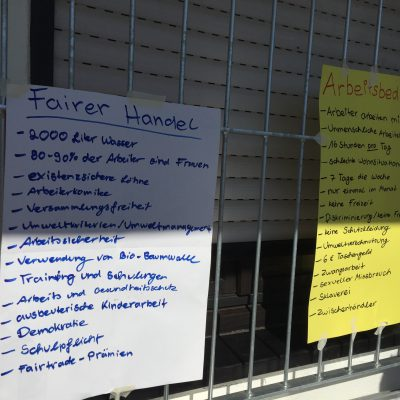 Fairer Handel
- 2000 Liter Wasser
- 80-90% der Arbeiter sind Frauen
- existenzsichere Löhne
- Arbeiterkomitee
- Versammlungsfreiheit
- Umweltkriterien/Umweltmanagement
- Arbeitssicherheit
- Verwendung von Bio-Baumwolle
- Training und Schulungen
- Arbeits und Gesundheitsschutz
- ausbeuterische Kinderarbeit
- Demokratie
- Schulpflicht
- Fairtrade-Prämien
Arbeitsbed
- Arbeiter arbeiten mi
- Unmenschliche Arbeits
- 16 Stunden pro Tag
- schlechte Wohnsituation
- 7 Tage die Woche
- nur einmal im Monat
- keine Freizeit
- Diskriminierung/keine Fr
- keine Schutzkleidung
- Umweltverschmutzung
- 6 € Taschengeld
- Zwangsarbeit
- sexueller Missbrauch
- Sklaverei
- Zwischenhändler